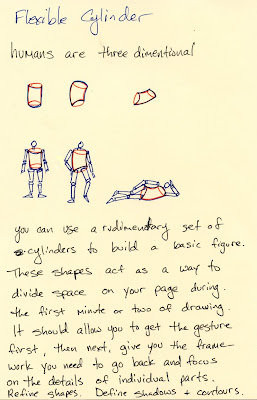 Flexible Cylinder
humans are three dimentional
you can use a rudimentary set of
cylinders to build a basic figure.
These shapes act as a way to
divide space on your page during
the first minute or two of drawing.
It should allow you to get the gesture
first, then next, give you the frame-
work you need to go back and focus
on the details of individual parts.
Refine shapes. Define shadows + contours.